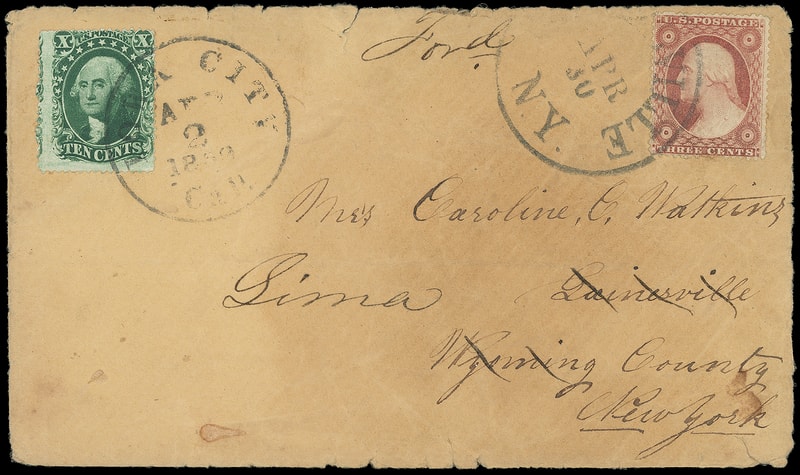 X U.S. POSTAGE X
TEN CENTS
CITY
2
CAL.
Ford
APR
30
N.Y.
U.S. POSTAGE
THREE CENTS
Mrs Caroline, C, Watkins
Lima Gainesville
Wyoming County
New York